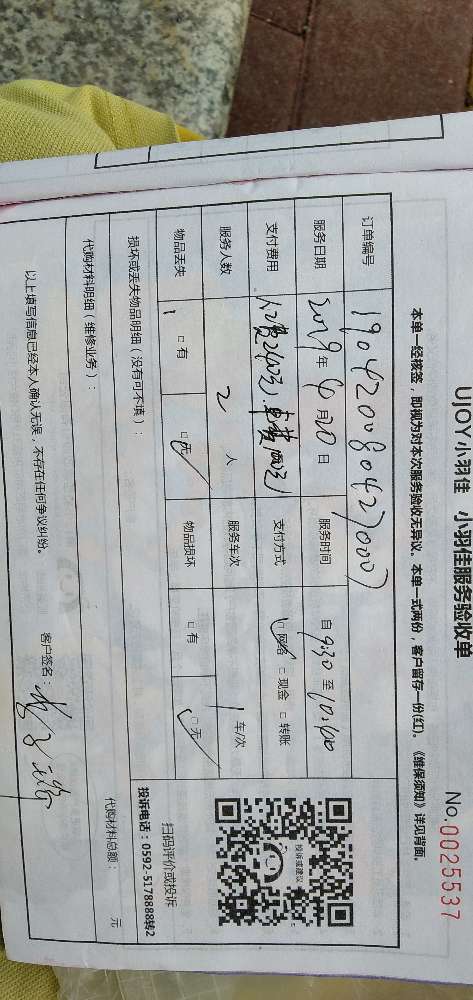 UJOY小羽佳 小羽佳服务验收单
No.0025537
本单一经核签，即视为对本次服务验收无异议。本单一式两份，客户留存一份(红)。《维保须知》详见背面。
订单编号
服务日期 2019年4月20日 服务时间 自9:30至10:00
支付费用 支付方式 □网络 □现金 □转账
服务人数 2人 服务车次 1车/次
物品丢失 □有 □无 物品损坏 □有 □无
损坏或丢失物品明细（没有可不填）：
代购材料明细（维修业务）：
代购材料总额： 元
投诉或建议
扫码评价或投诉
投诉电话：0592-5178888转2
以上填写信息已经本人确认无误，不存在任何争议纠纷。
客户签名：